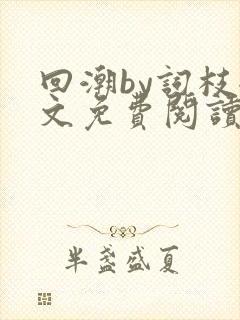 回潮by词枝
文免費閱讀
半盏盛夏